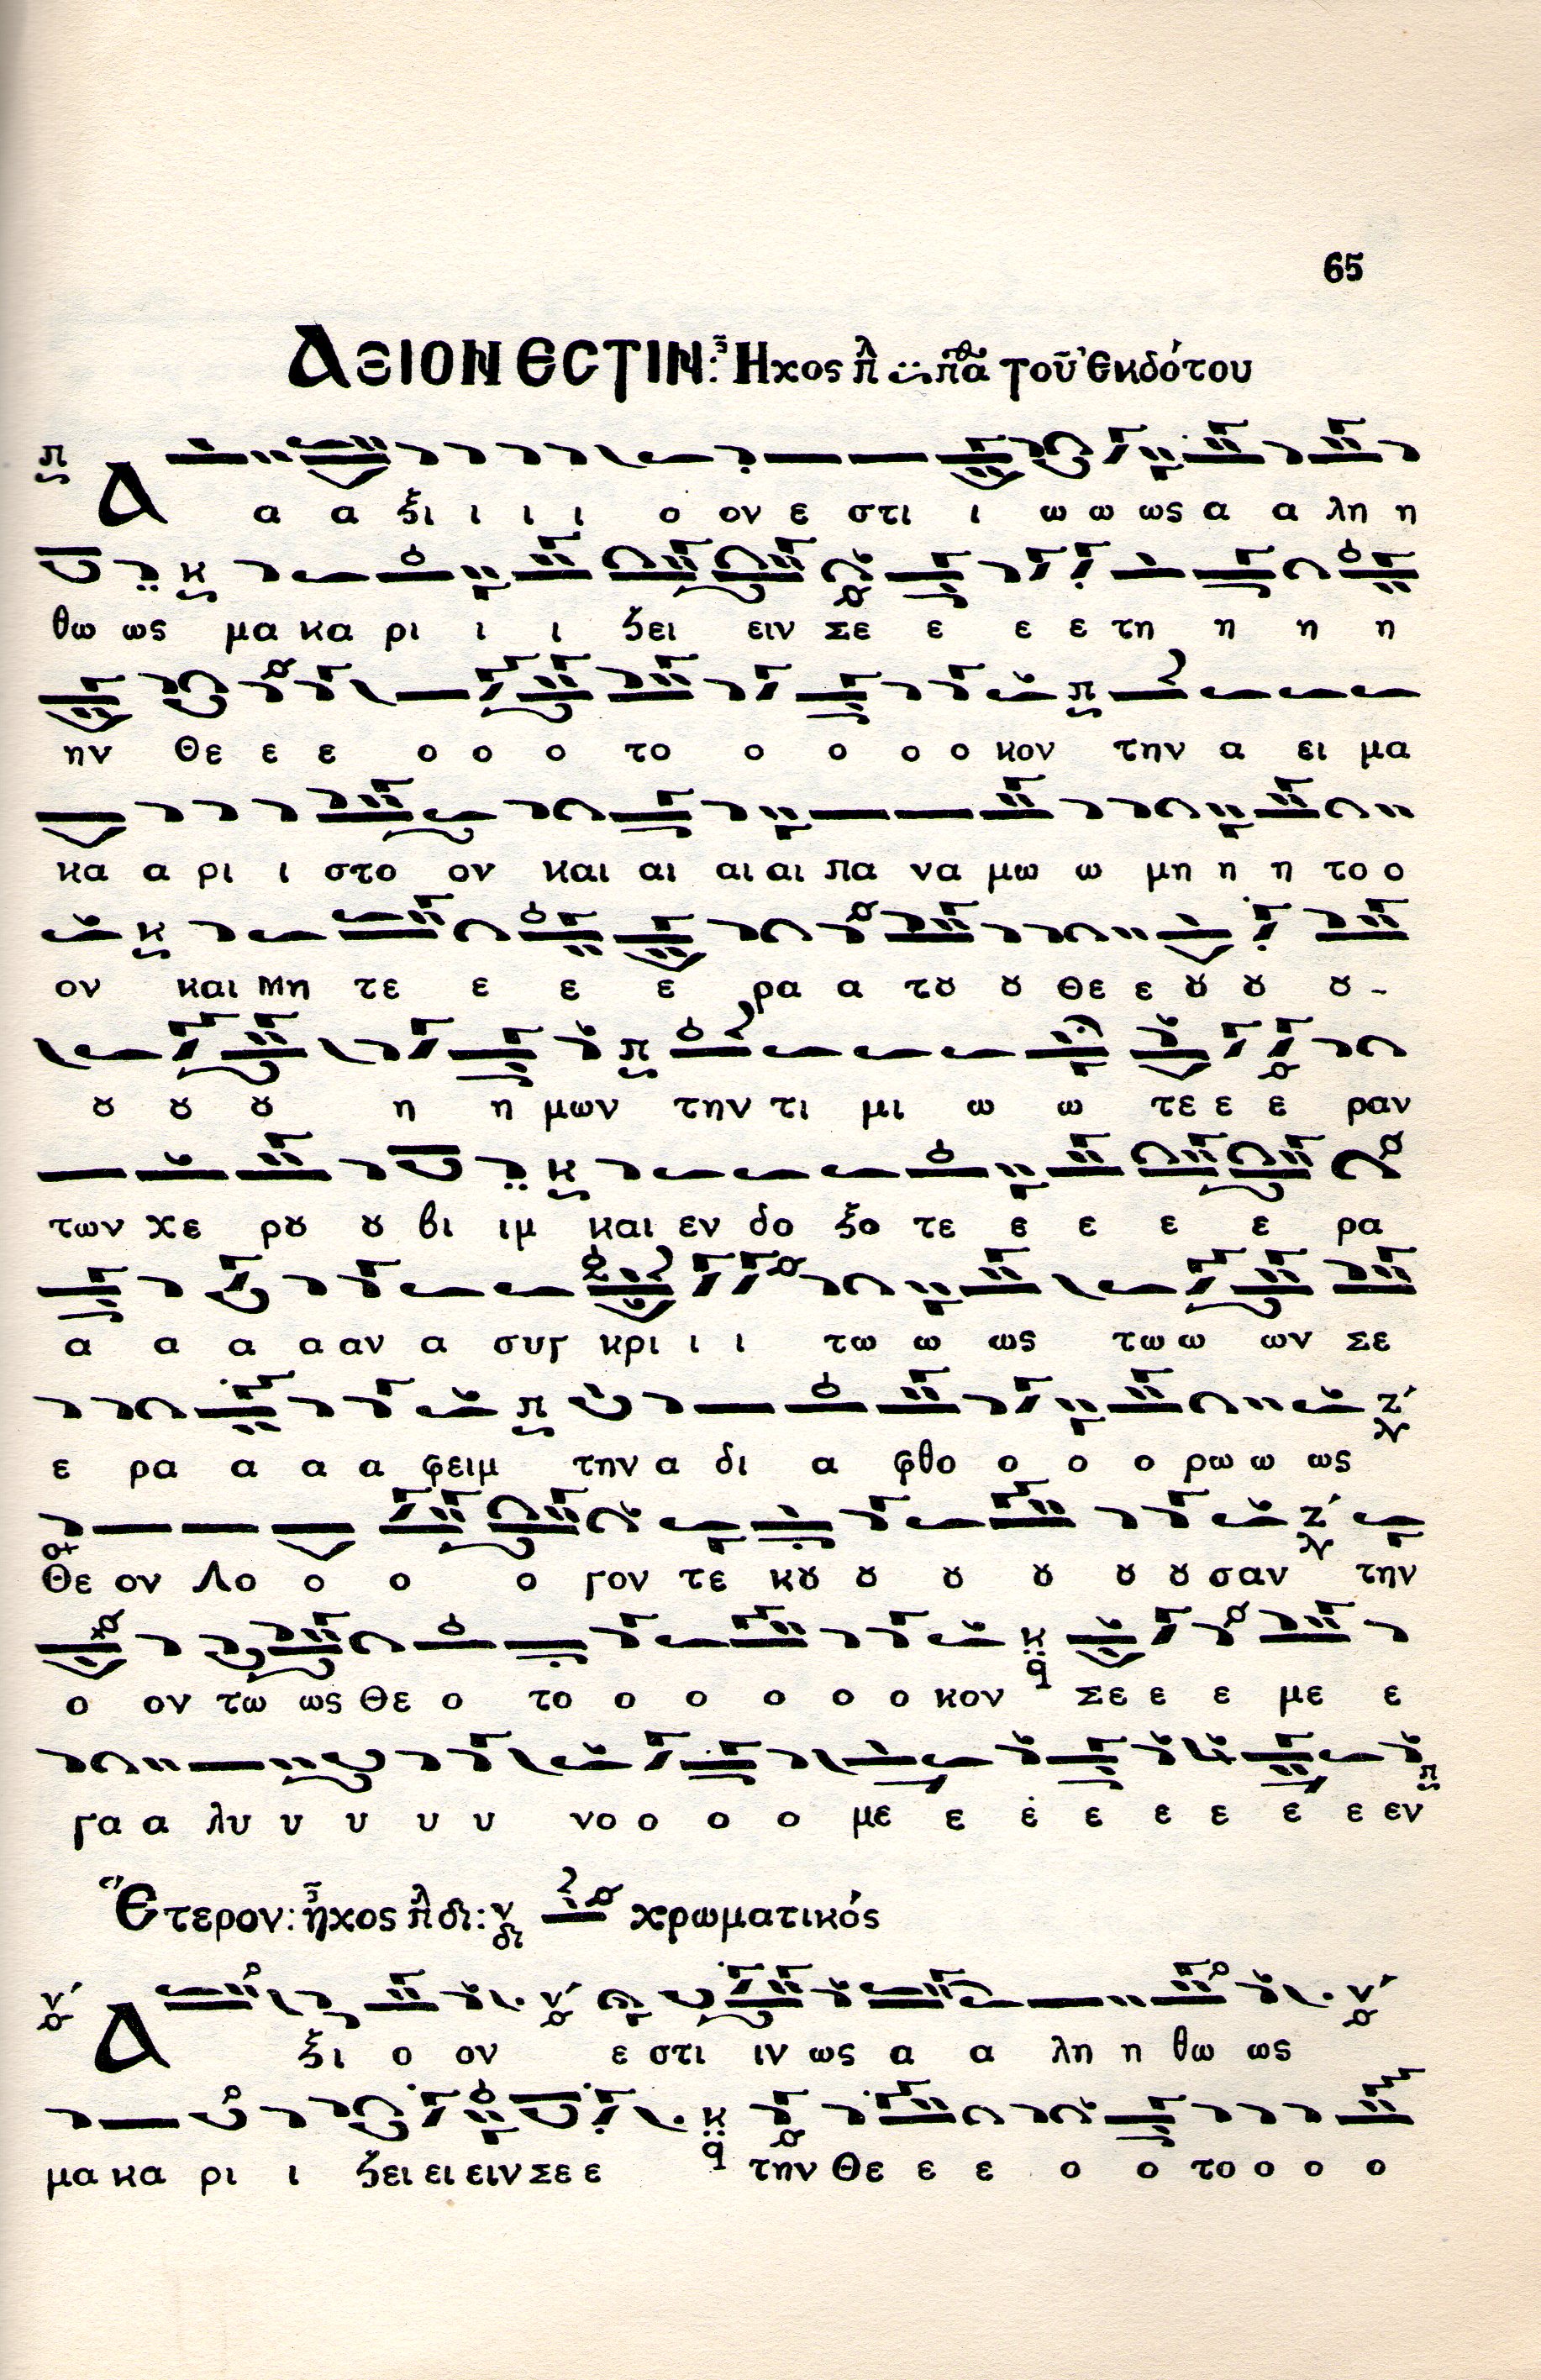 65
ΑΞΙΟΝ ЄCΤΙΝ: Ἦχος πλ πα τοῦ Ἐκδότου
π
Α α α ξι ι ι ι ι ο ον ε στι ι ω ω ως α α λη η
κ
θω ως μα κα ρι ι ι ζει ειν Σε ε ε ε τη η η η
π
ην Θε ε ε ε ο ο ο το ο ο ο ο κον την α ει μα
κα α ρι ι στο ον και αι αι αι πα να μω ω μη η η το ο
κ
ον και Μη τε ε ε ε ρα α τȣ ȣ Θε ε ȣ ȣ ȣ -
π
ȣ ȣ ȣ η η μων την τι μι ω ω τε ε ε ραν
κ
των χε ρȣ ȣ βι ιμ και εν δο ξο τε ε ε ε ε ρα
α α α α αν α συγ κρι ι ι τω ω ως τω ω ων Σε
π Ζ΄
ε ρα α α α φειμ την α δι α φθο ο ο ο ρω ω ως
Ζ΄
Θε ον Λο ο ο ο γον τε κȣ ȣ ȣ ȣ ȣ ȣ σαν την
κ
ο ον τω ως Θε ο το ο ο ο ο ο κον Σε ε ε με ε
π
γα α λυ υ υ υ υ νο ο ο ο με ε ε ε ε ε ε ε εν
Ἕτερον: ἦχος πλ δι: ν δι χρωματικός
ν΄ ν΄ ν΄
Α ξι ο ον ε στι ιν ως α α λη η θω ως
κ
μα κα ρι ι ζει ει ειν Σε ε την Θε ε ε ο ο το ο ο ο